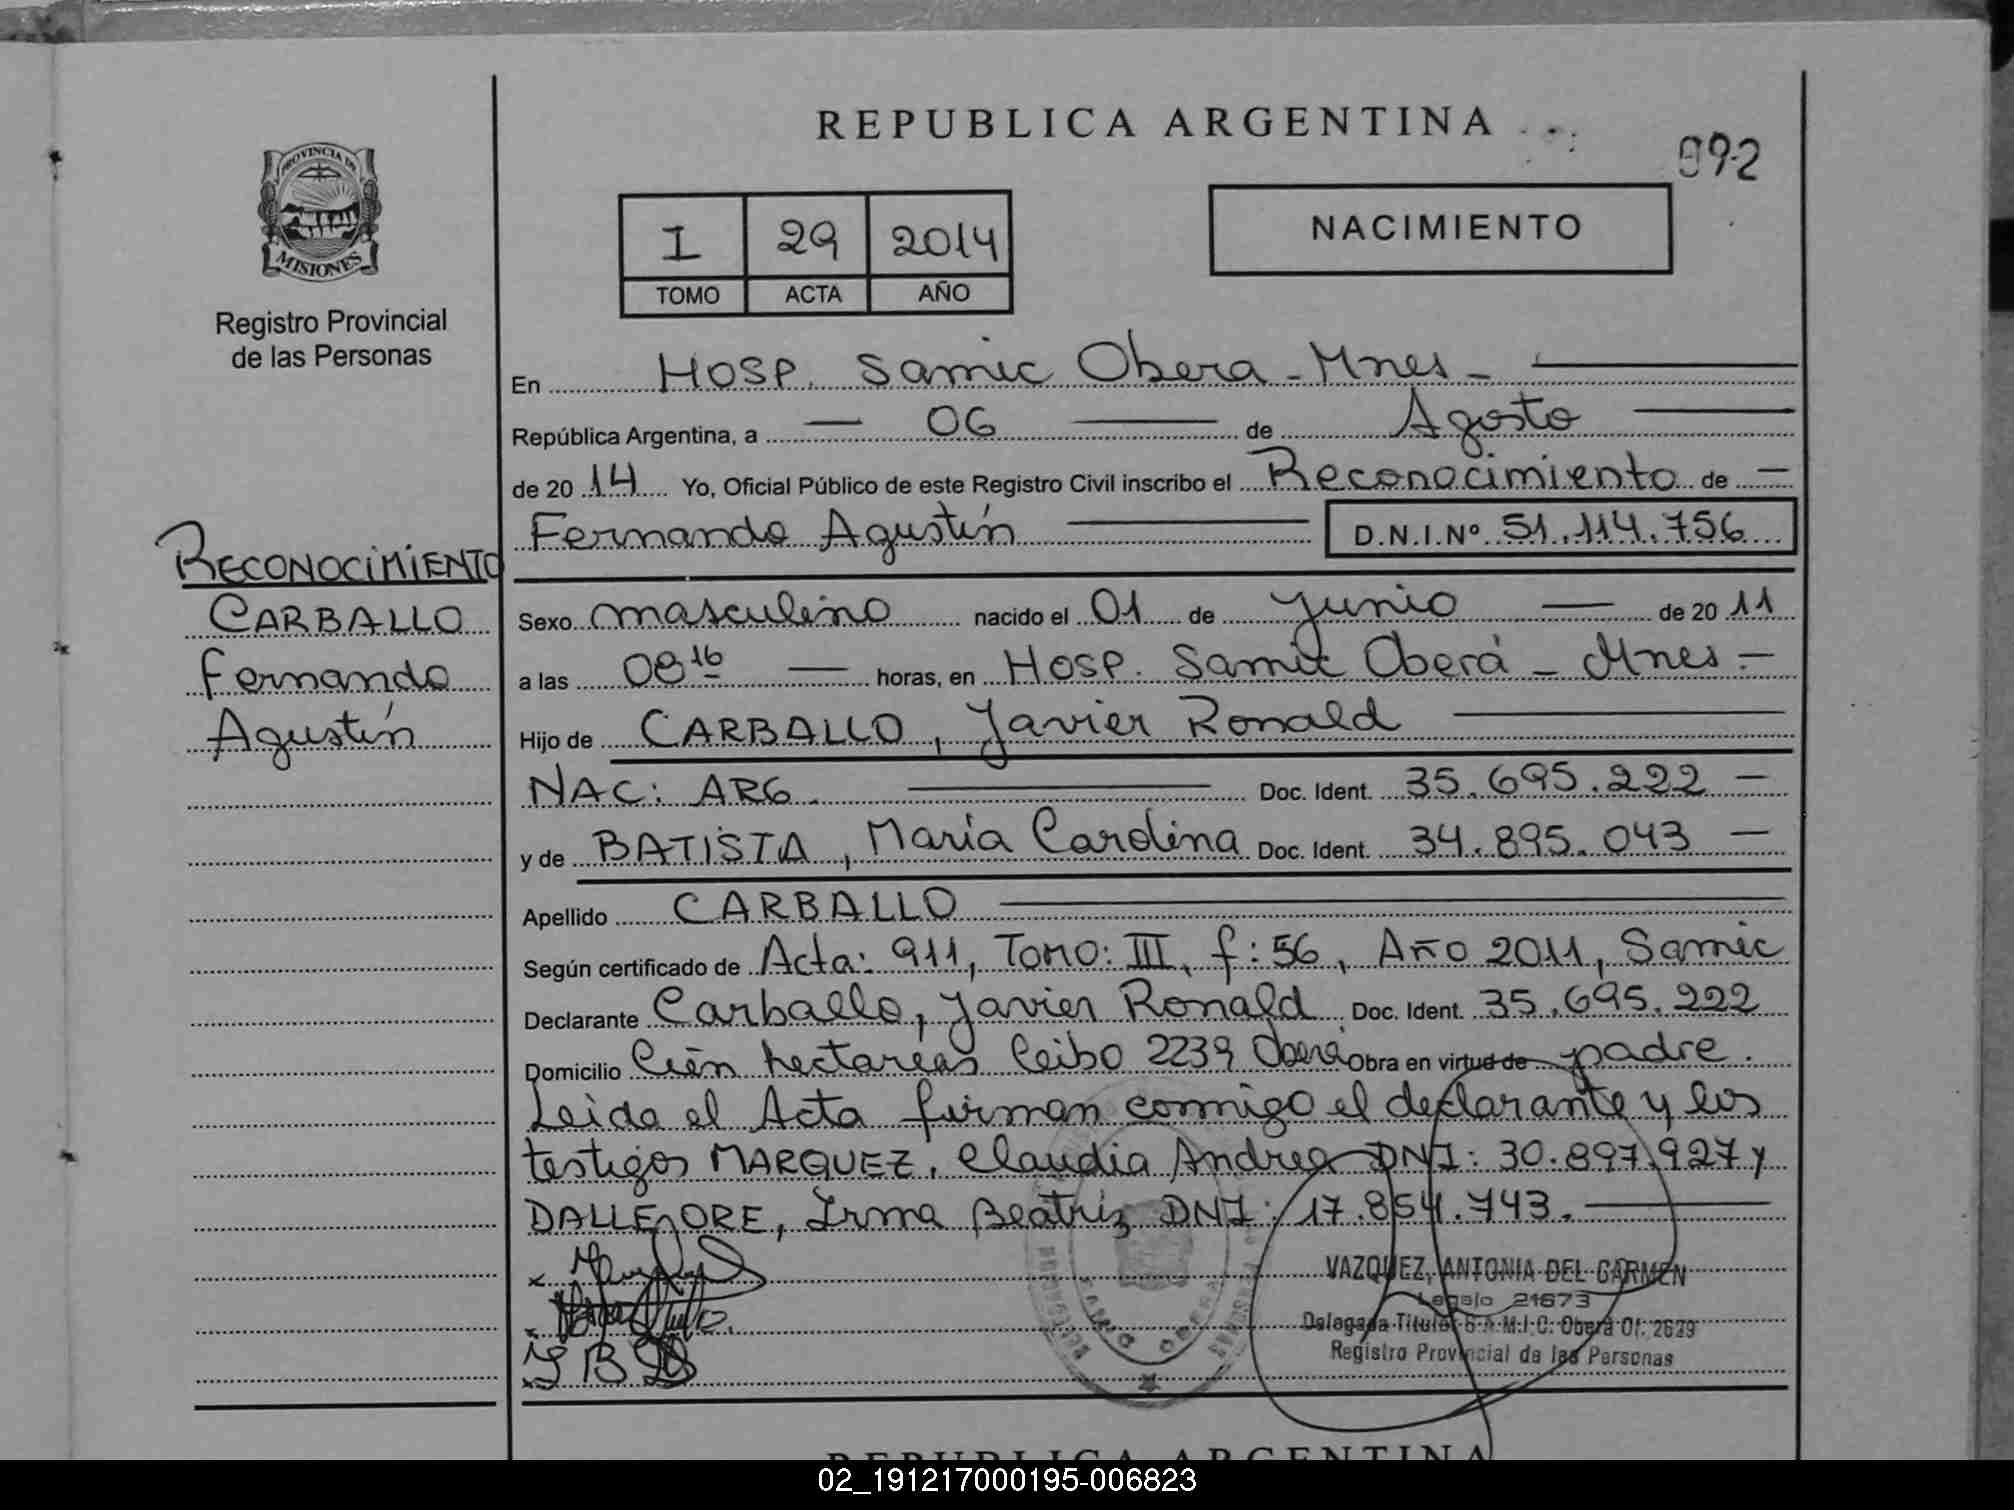 REPUBLICA ARGENTINA
092
PROVINCIA DE
MISIONES
Registro Provincial
de las Personas
I 29 2014
TOMO ACTA AÑO
NACIMIENTO
En Hosp. Samic Obera - Mnes -
República Argentina, a — 06 — de Agosto —
de 2014 Yo, Oficial Público de este Registro Civil inscribo el Reconocimiento de —
Fernando Agustín — D.N.I.Nº 51.114.756
RECONOCIMIENTO
CARBALLO
Fernando
Agustín
Sexo masculino nacido el 01 de Junio — de 2011
a las 08 16 — horas, en Hosp. Samic Oberá - Mnes. -
Hijo de CARBALLO, Javier Ronald —
NAC: ARG. — Doc. Ident. 35.695.222 —
y de BATISTA, María Carolina Doc. Ident. 34.895.043 —
Apellido CARBALLO —
Según certificado de Acta: 911, Tomo: III, f: 56, Año 2011, Samic
Declarante Carballo, Javier Ronald Doc. Ident. 35.695.222
Domicilio Cien hectareas Ceibo 2239 Oberá Obra en virtud de padre.
Leida el Acta firman conmigo el declarante y los
testigos MARQUEZ, Claudia Andrea DNI: 30.897.927 y
DALLE ORE, Irma Beatriz DNI: 17.854.743. —
VAZQUEZ, ANTONIA DEL CARMEN
Legajo 21673
Delegada Titular S.A.M.I.C. Oberá Of. 2639
Registro Provincial de las Personas
REPUBLICA ARGENTINA
02_191217000195-006823